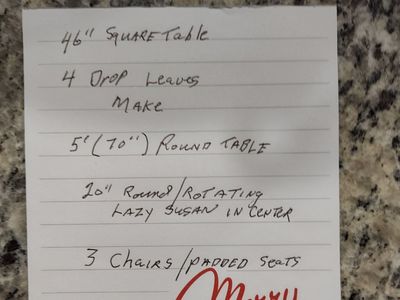 46" SQUARE Table
4 Drop Leaves
MAKE
5' (70") ROUND TABLE
20" Round/ROTATING
LAZY SUSAN IN CENTER
3 Chairs/PADDED Seats